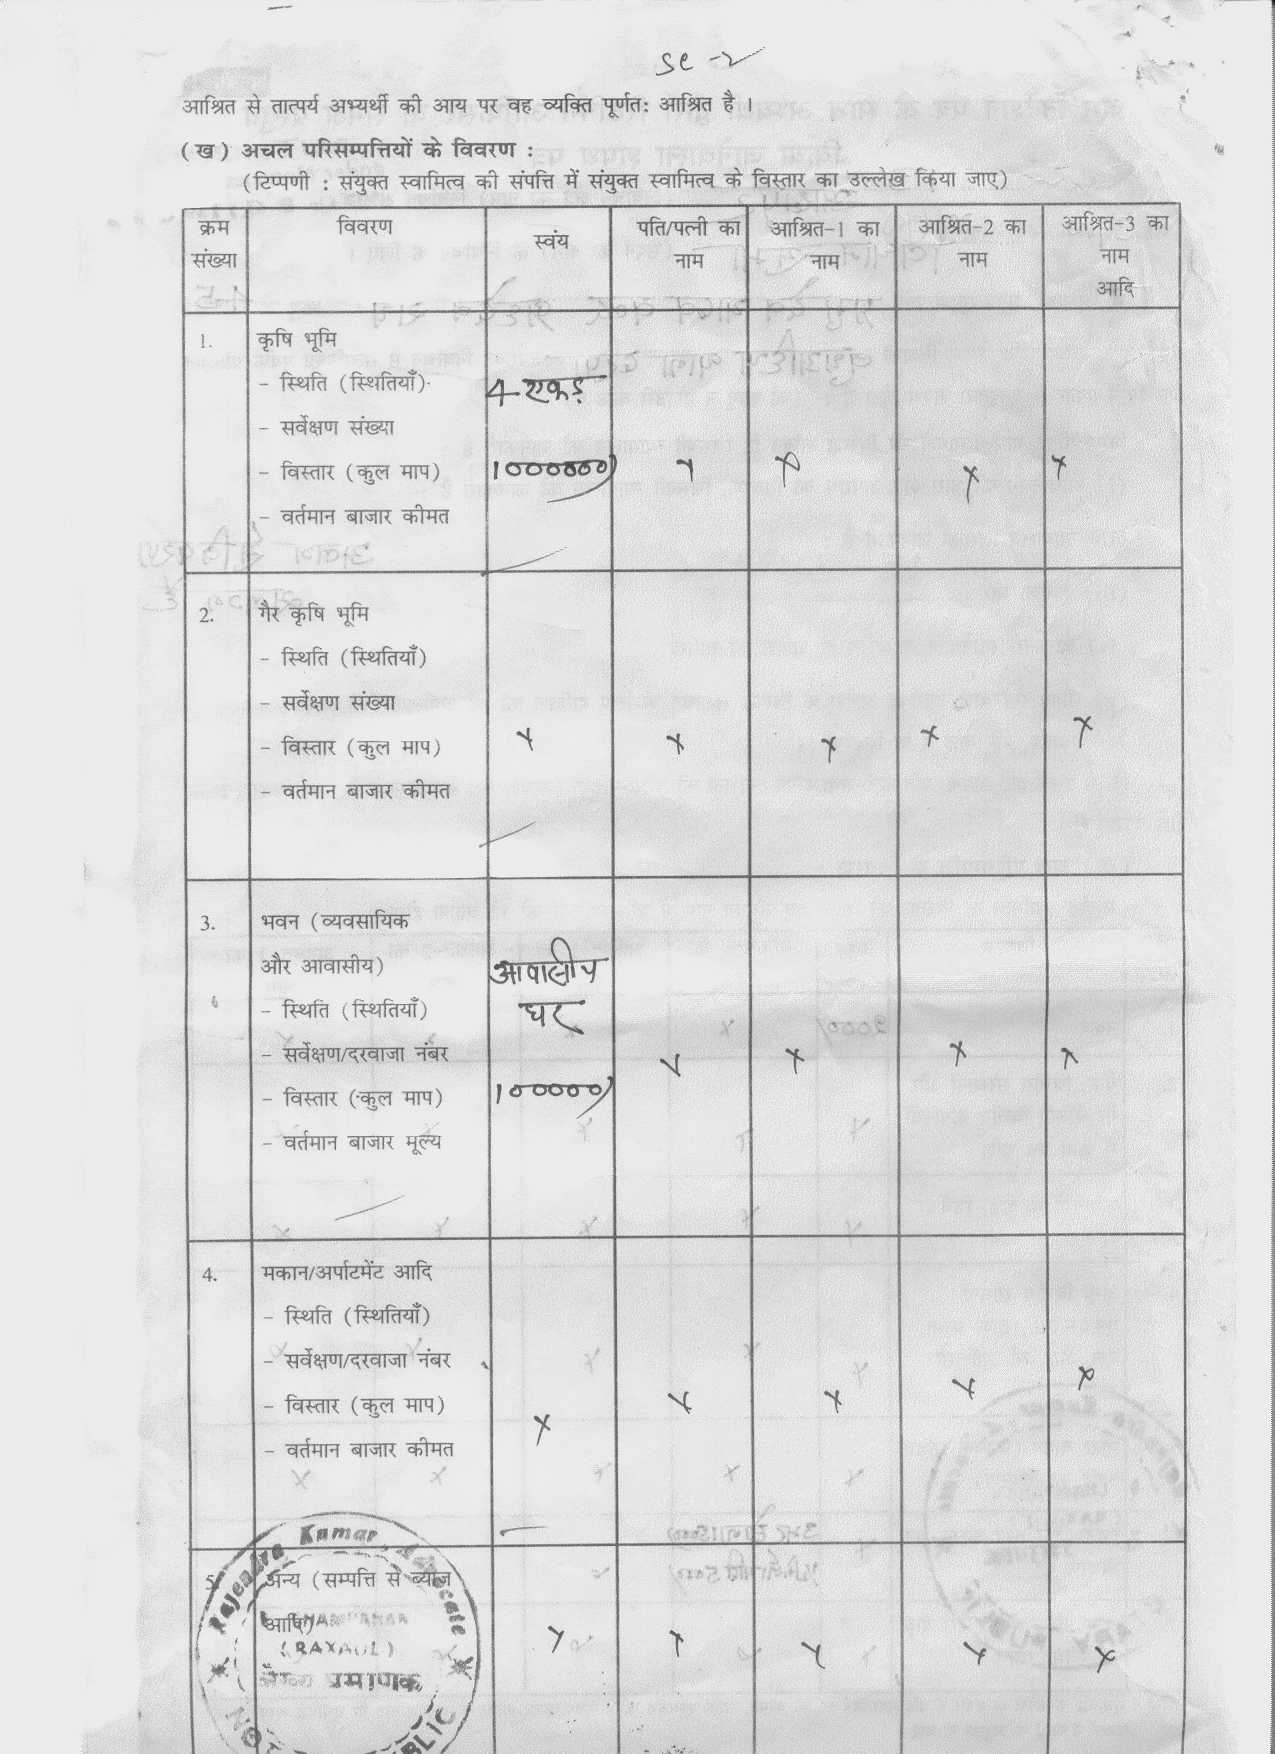 SC-2
आश्रित से तात्पर्य अभ्यर्थी की आय पर वह व्यक्ति पूर्णत: आश्रित है ।
(ख) अचल परिसम्पत्तियों के विवरण :
(टिप्पणी : संयुक्त स्वामित्व की संपत्ति में संयुक्त स्वामित्व के विस्तार का उल्लेख किया जाए)
क्रम संख्या विवरण स्वंय पति/पत्नी का नाम आश्रित-1 का नाम आश्रित-2 का नाम आश्रित-3 का नाम आदि
1. कृषि भूमि
- स्थिति (स्थितियाँ) 4 एकड़
- सर्वेक्षण संख्या
- विस्तार (कुल माप) 1000000) x x x x
- वर्तमान बाजार कीमत
2. गैर कृषि भूमि
- स्थिति (स्थितियाँ)
- सर्वेक्षण संख्या
- विस्तार (कुल माप) x x x x x
- वर्तमान बाजार कीमत
3. भवन (व्यवसायिक
और आवासीय) आवासीय
- स्थिति (स्थितियाँ) घर
- सर्वेक्षण/दरवाजा नंबर x x x x
- विस्तार (कुल माप) 100000)
- वर्तमान बाजार मूल्य
4. मकान/अर्पाटमेंट आदि
- स्थिति (स्थितियाँ)
- सर्वेक्षण/दरवाजा नंबर
- विस्तार (कुल माप) x x x x x
- वर्तमान बाजार कीमत
5. अन्य (सम्पत्ति से ब्याज
आदि) x x x x x
Rajendra Kumar, Advocate
(RAXAUL)
प्रमाणक